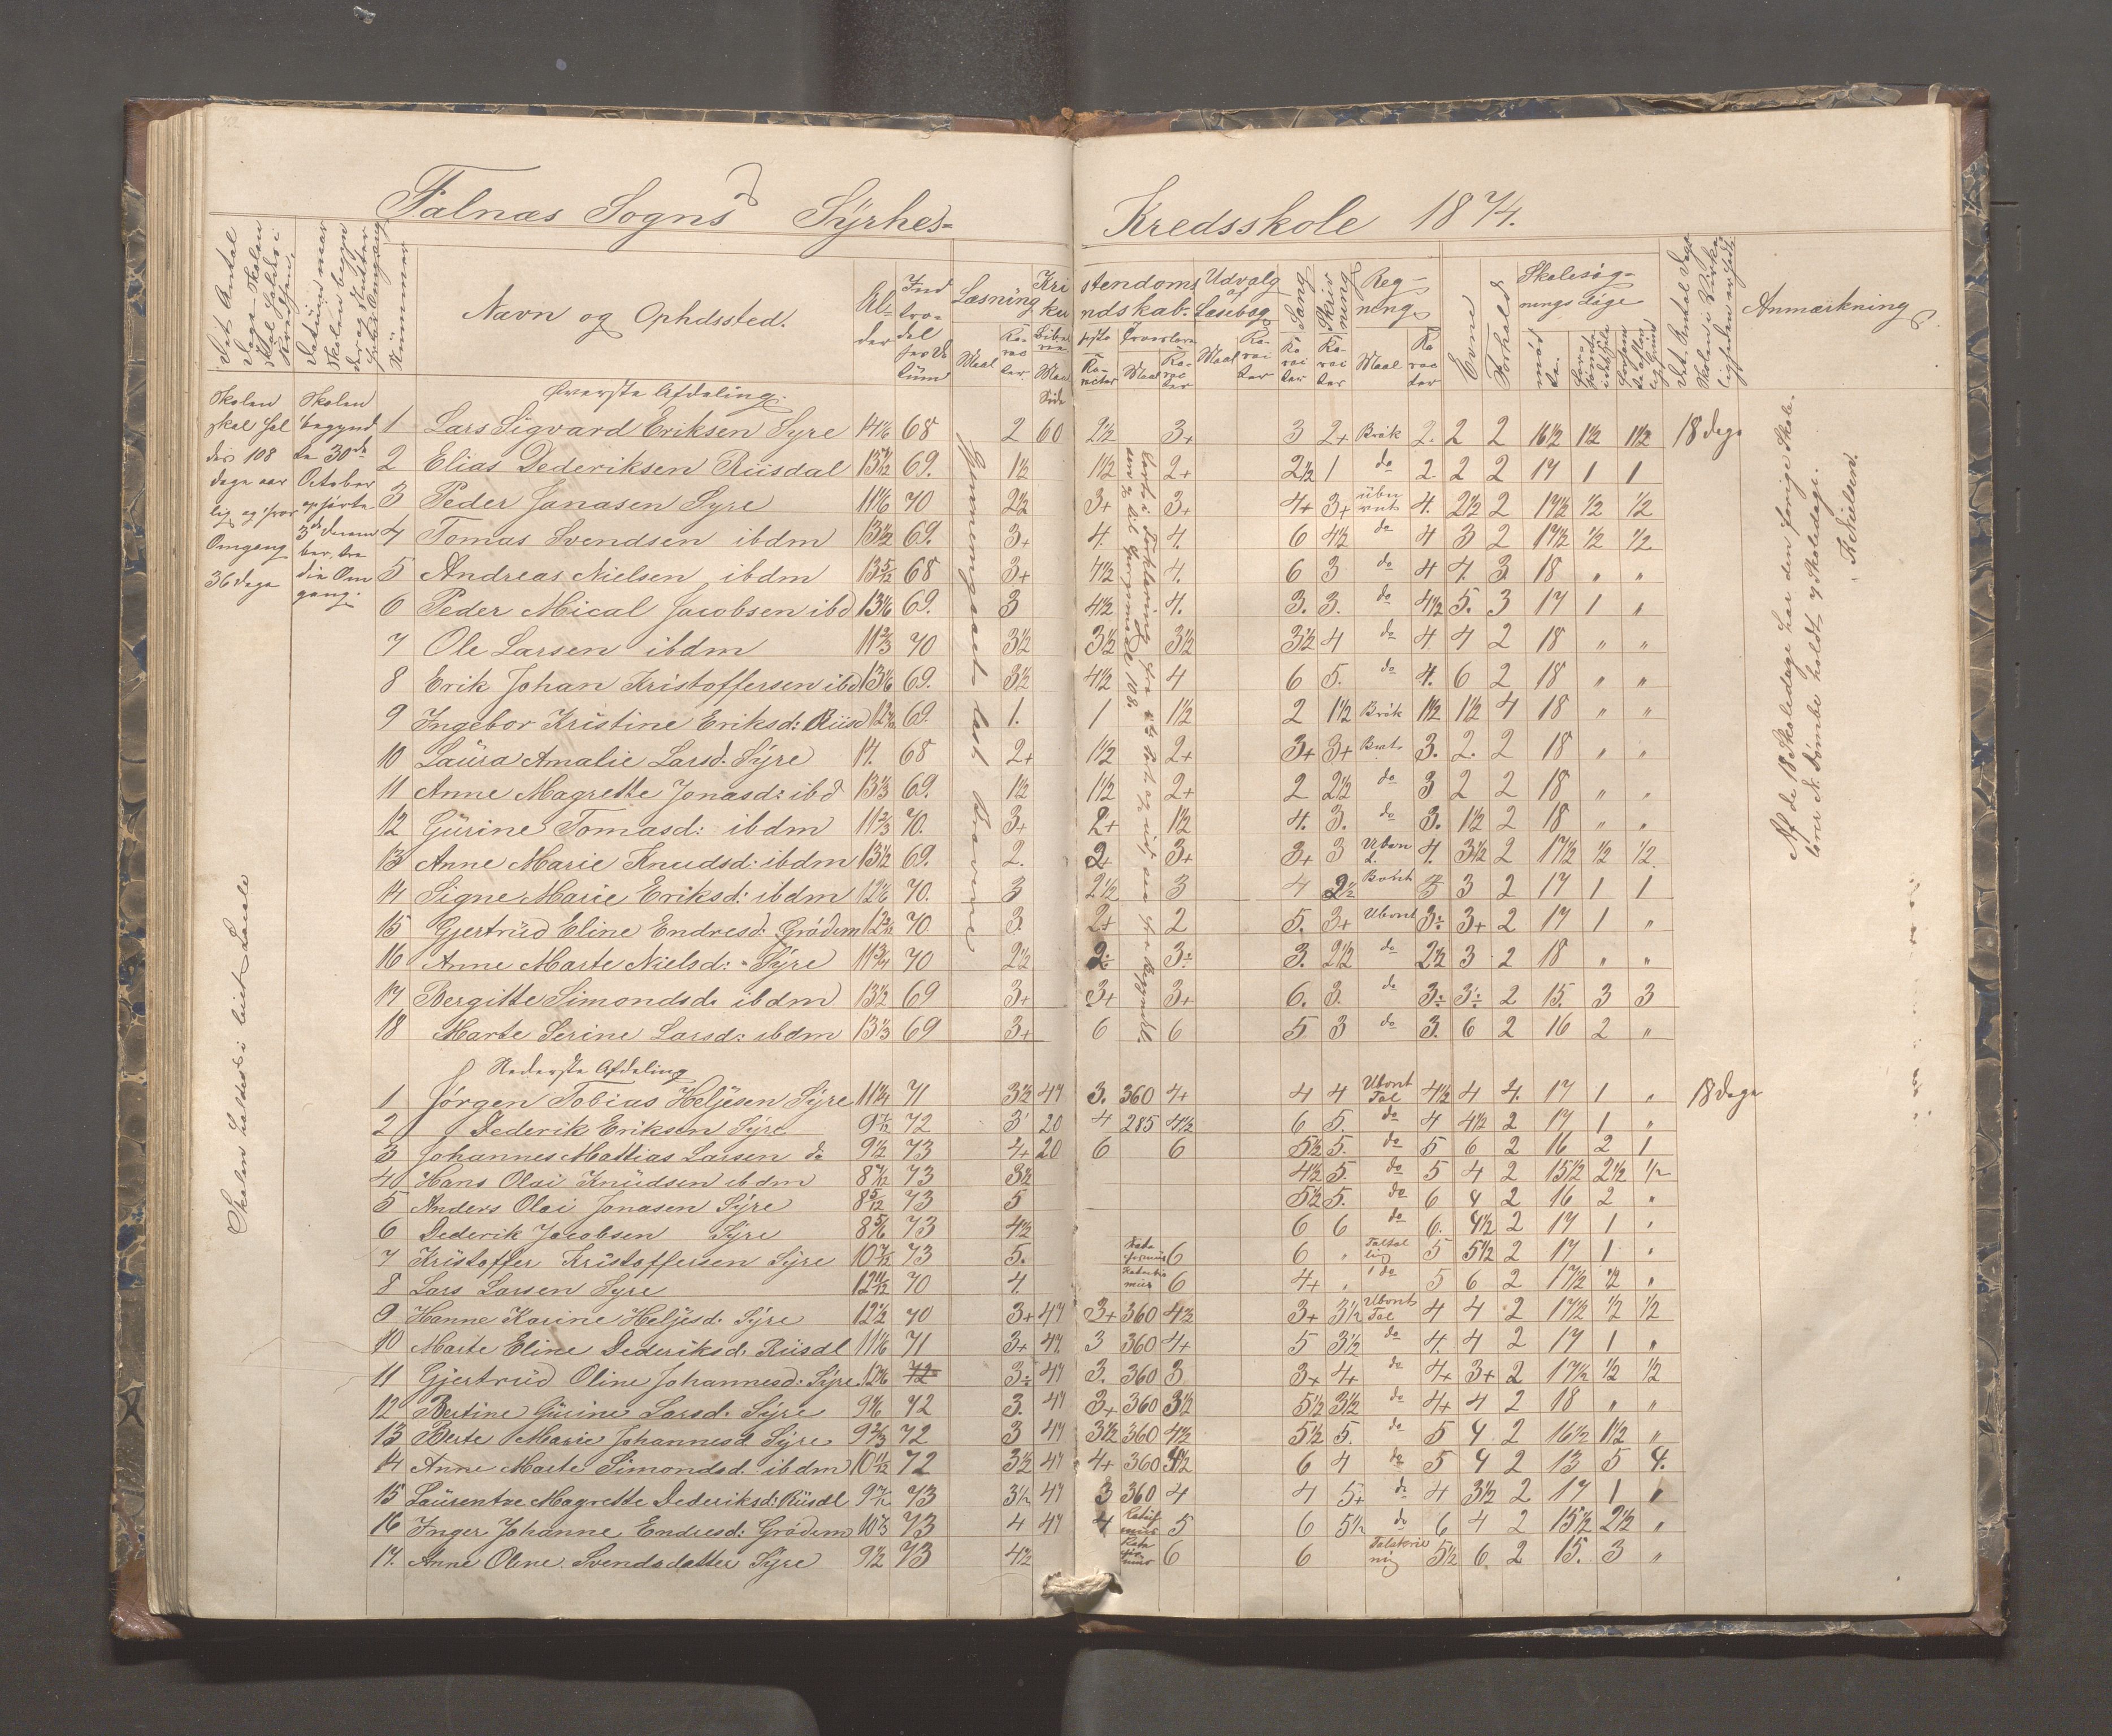 Falnæs Sogns Syrhes= Kredsskole 1874.
Det Antal Dage Skolen skal holdes i Kredsen.
Datum naar Skolen begyn der og slutter
Nummer
Navn og Opholdssted.
Al-
der
Ind
tra-
del
ses Da
tum
Læsning
Maal
Ka-
rac
ter
Kri stendoms
ku ndskab.
Udvalg
af
Læsebog
Maal
Ka-
rac
ter
Sang
Skriv
ning
Reg-
ning
Maal
Evne
Forhold
Skolesøg-
nings Dage
mød
te.
Anmærkning
Skolen
skal hol
des 108
dage aar
lig og hver
Omgang
36 dage
Skolen
begynd
te 30de
October
ophørte
3de decem
ber, tre
die Om
gang.
Øverste Afdeling.
1 Lars Sigvard Eriksen Syre 14 1/6 68 2 60 2½ 3+ 3 2+ Brøk 2. 2 2 16½ 1½ 1½ 18 dage
2 Elias Dederiksen Riisdal 69. 1½ 1½ 2+ 2½ 1 do 2 2 2 17 1 1
3 Peder Jonasen Syre 11 1/6 70 2½ 3+ 3+ 4+ 3+ 4. 2½ 2 17½ ½ ½
4 Tomas Svendsen ibdm 13½ 69. 3+ 4. 4. 6 4½ do 4 3 2 17½ ½ ½
5 Andreas Nielsen ibdm 13 5/12 68 3+ 4½ 4. 6 3 do 4 4. 3 18 " "
6 Peder Mical Jacobsen ibd 13 1/6 69. 3 4½ 4. 3. 3. do 4½ 5. 3 17 1 "
7 Ole Larsen ibdm 11 2/3 70 3½ 3½ 3½ 3½ 4 do 4. 4 2 18 " "
8 Erik Johan Kristoffersen ibd 13 1/6 69. 3½ 4½ 4 6 5. do 4. 6 2 18 " "
9 Ingebor Kristine Eriksd: Riisd 69. 1. 1 1½ 2 1½ Brøk 1½ 1½ 4 18 " "
10 Laura Amalie Larsd. Syre 14. 68 2+ 1½ 2+ 3+ 3+ 3. 2. 2 18 " "
11 Anne Magrette Jonasd: ibd 13 1/3 69. 1½ 1½ 2+ 2 2½ do 3 2 2 18 " "
12 Gurine Tomasd: ibdm 11 2/3 70. 3+ 2+ 1½ 4. 3. do 3. 1½ 2 18 " "
13 Anne Marie Knudsd: ibdm 13½ 69. 2. 2+ 3+ 3+ 3 4. 3½ 2 17½ ½ ½
14 Signe Marie Eriksd: ibdm 12 1/6 70. 3 2½ 3 4 2½ 3 3 2 17 1 1
15 Gjertrud Eline Endresd: Grødem 70 3 2+ 2 5. 3+ Ubent 3÷ 3+ 2 17 1 "
16 Anne Marte Nielsd: Syre 11 3/4 70 2½ 2÷ 3÷ 3. 2½ do 2½ 3 2 18 " "
17 Bergitte Simondsd. ibdm 13½ 69 3+ 3+ 3+ 6. 3. do 3÷ 3÷ 2 15. 3 3
18 Marte Serine Larsd: ibdm 13 1/3 69 3+ 6 6 5 3 do 3. 6 2 16 2 "
Nederste Afdeling
1 Jørgen Tobias Heljesen Syre 11¼ 71 3½ 47 3. 360 4+ 4 4 Ubent Tal 4½ 4 4. 17 1 " 18 dage
2 Dederik Eriksen Syre 9 7/12 72 3 20 4 285 4½ 6 5. do 4 4½ 2 17 1 "
3 Johannes Mattias Larsen do 9½ 73 4+ 20 6 6 5½ 5. do 5 6 2 16 2 1
4 Hans Olai Knudsen ibdm 73 3½ 4½ 5. do 5 4 2 15½ 2½ ½
5 Anders Olai Jonasen Syre 8 5/12 73 5 5½ 5. do 6 4 2 16 2 "
6 Dederik Jacobsen Syre 8 5/6 73 4½ 6 6 do 6. 4½ 2 17 1 "
7 Kristoffer Kristoffersen Syre 73 5. 6 6 " 5 5½ 2 17 1 "
8 Lars Larsen Syre 70 4. 6 4+ " do 5 6 2 17½ ½ "
9 Hanne Karine Heljesd. Syre 12½ 70 3+ 47 3+ 360 4½ 3+ 3½ Ubent Tal 4 4 2 17½ ½ ½
10 Marte Eline Dederiksd. Riisdl 11 1/6 71 3+ 47 3 360 4+ 5 3½ do 4. 4 2 17 1 "
11 Gjertrud Oline Johannesd: Syre 12 1/6 72 3÷ 47 3. 360 3 3+ 4+ do 4+ 3+ 2 17½ ½ ½
12 Bertine Gurine Larsd. Syre 9 1/6 72 3. 47 3+ 360 3½ 5½ 3½ do 4+ 4 2 18 " "
13 Berte Marie Johannesd Syre 9 2/3 72 3 47 3½ 360 4½ 5½ 5. do 5 4 2 16½ 1½ "
14 Anne Marte Simondsd. ibdm 10 11/12 72 3½ 47 4+ 360 4½ 6 4 do 5 4 2 13 5 4.
15 Laurentse Magrette Dederiksd: Riisdl 9 7/12 73 3½ 47 3 360 4 4 5+ do 4 3½ 2 17 1 "
16 Inger Johanne Endresd: Grødem 73 4 47 4 5 6 5½ do 6 4 2 15½ 2½ "
17. Anne Oline Svendsdatter Syre 9½ 73 4½ 6 6 5½ 6. 2 15. 3 "
Skolen holdes i leiet Locale
Af de 18 Skoledage har den forige Skole-
lærer N. Tømbe holdt 7 Skoledage.